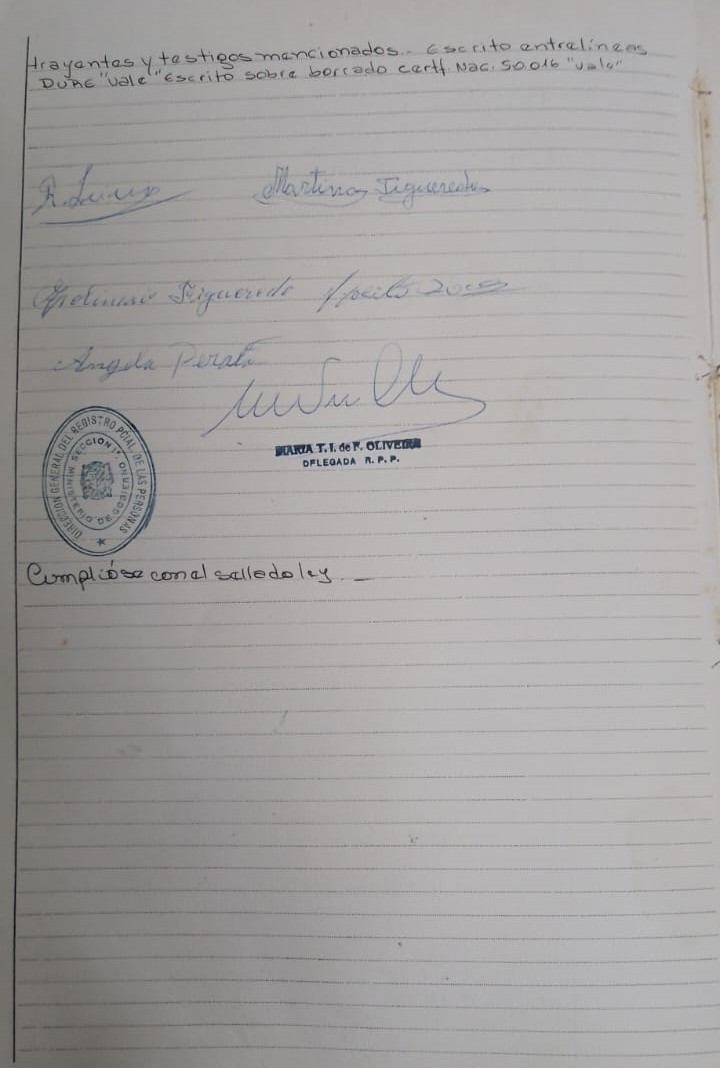 trayentes y testigos mencionados.. Escrito entrelíneas
DURE "Vale" Escrito sobre borrado certf. Nac. 50.016 "Vale"
Martina Figueredo
Figueredo
Angela Peralta
MARIA T. I. de F. OLIVEIRA
DELEGADA R. P. P.
DIRECCION GENERAL DEL REGISTRO PCIAL. DE LAS PERSONAS
MINISTERIO DE GOBIERNO
SECCION 1ª
Cumplióse con el sellado ley. _